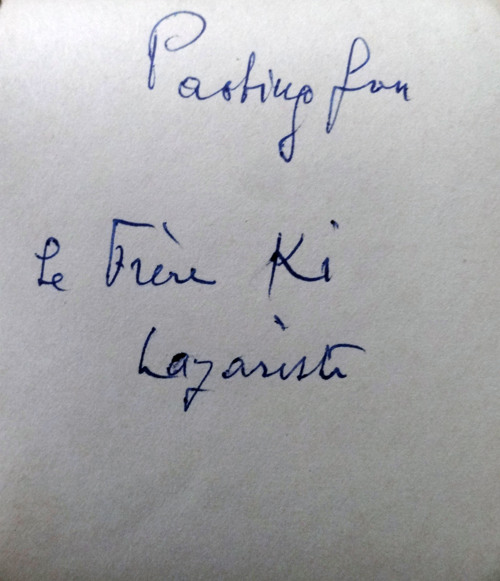 Paoting fou
Le Frère Ki
Lazariste